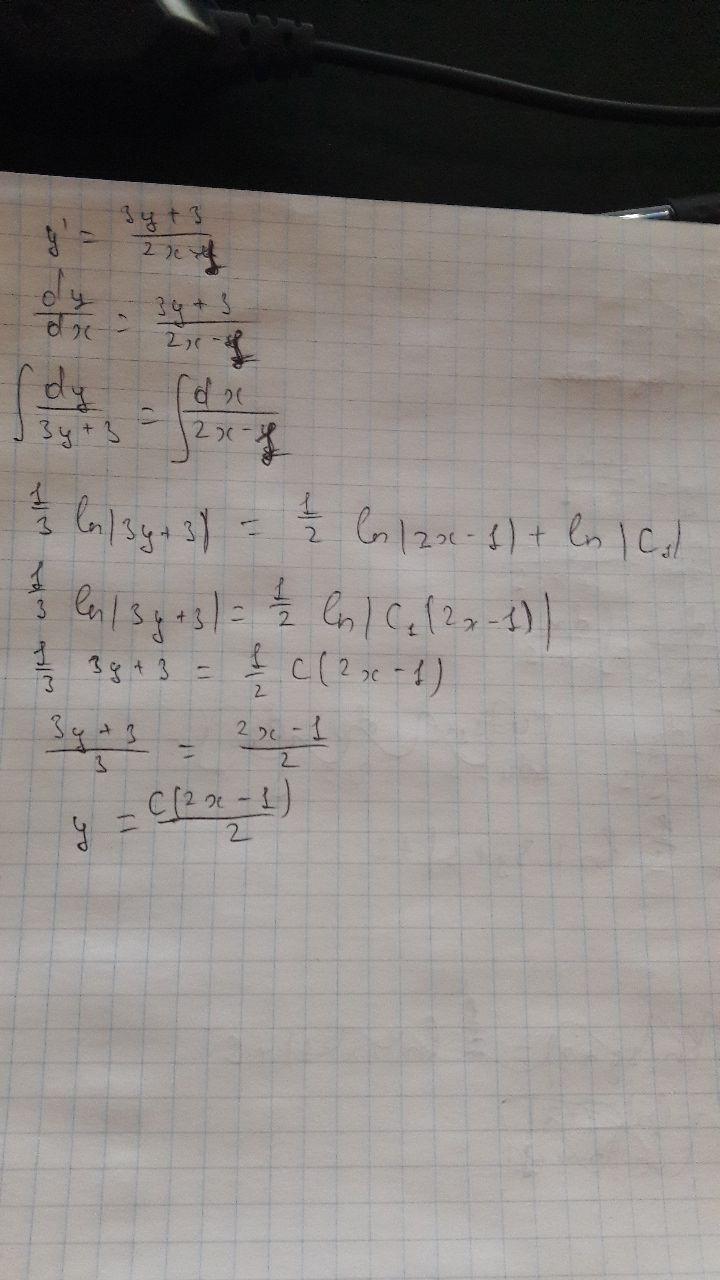 y' = (3y + 3)/(2x - y)
dy/dx = (3y + 3)/(2x - y)
∫ dy/(3y + 3) = ∫ dx/(2x - y)
1/3 ln|3y + 3| = 1/2 ln|2x - 1| + ln|C₁|
1/3 ln|3y + 3| = 1/2 ln|C₁(2x - 1)|
1/3 3y + 3 = 1/2 C(2x - 1)
(3y + 3)/3 = (2x - 1)/2
y = C(2x - 1)/2